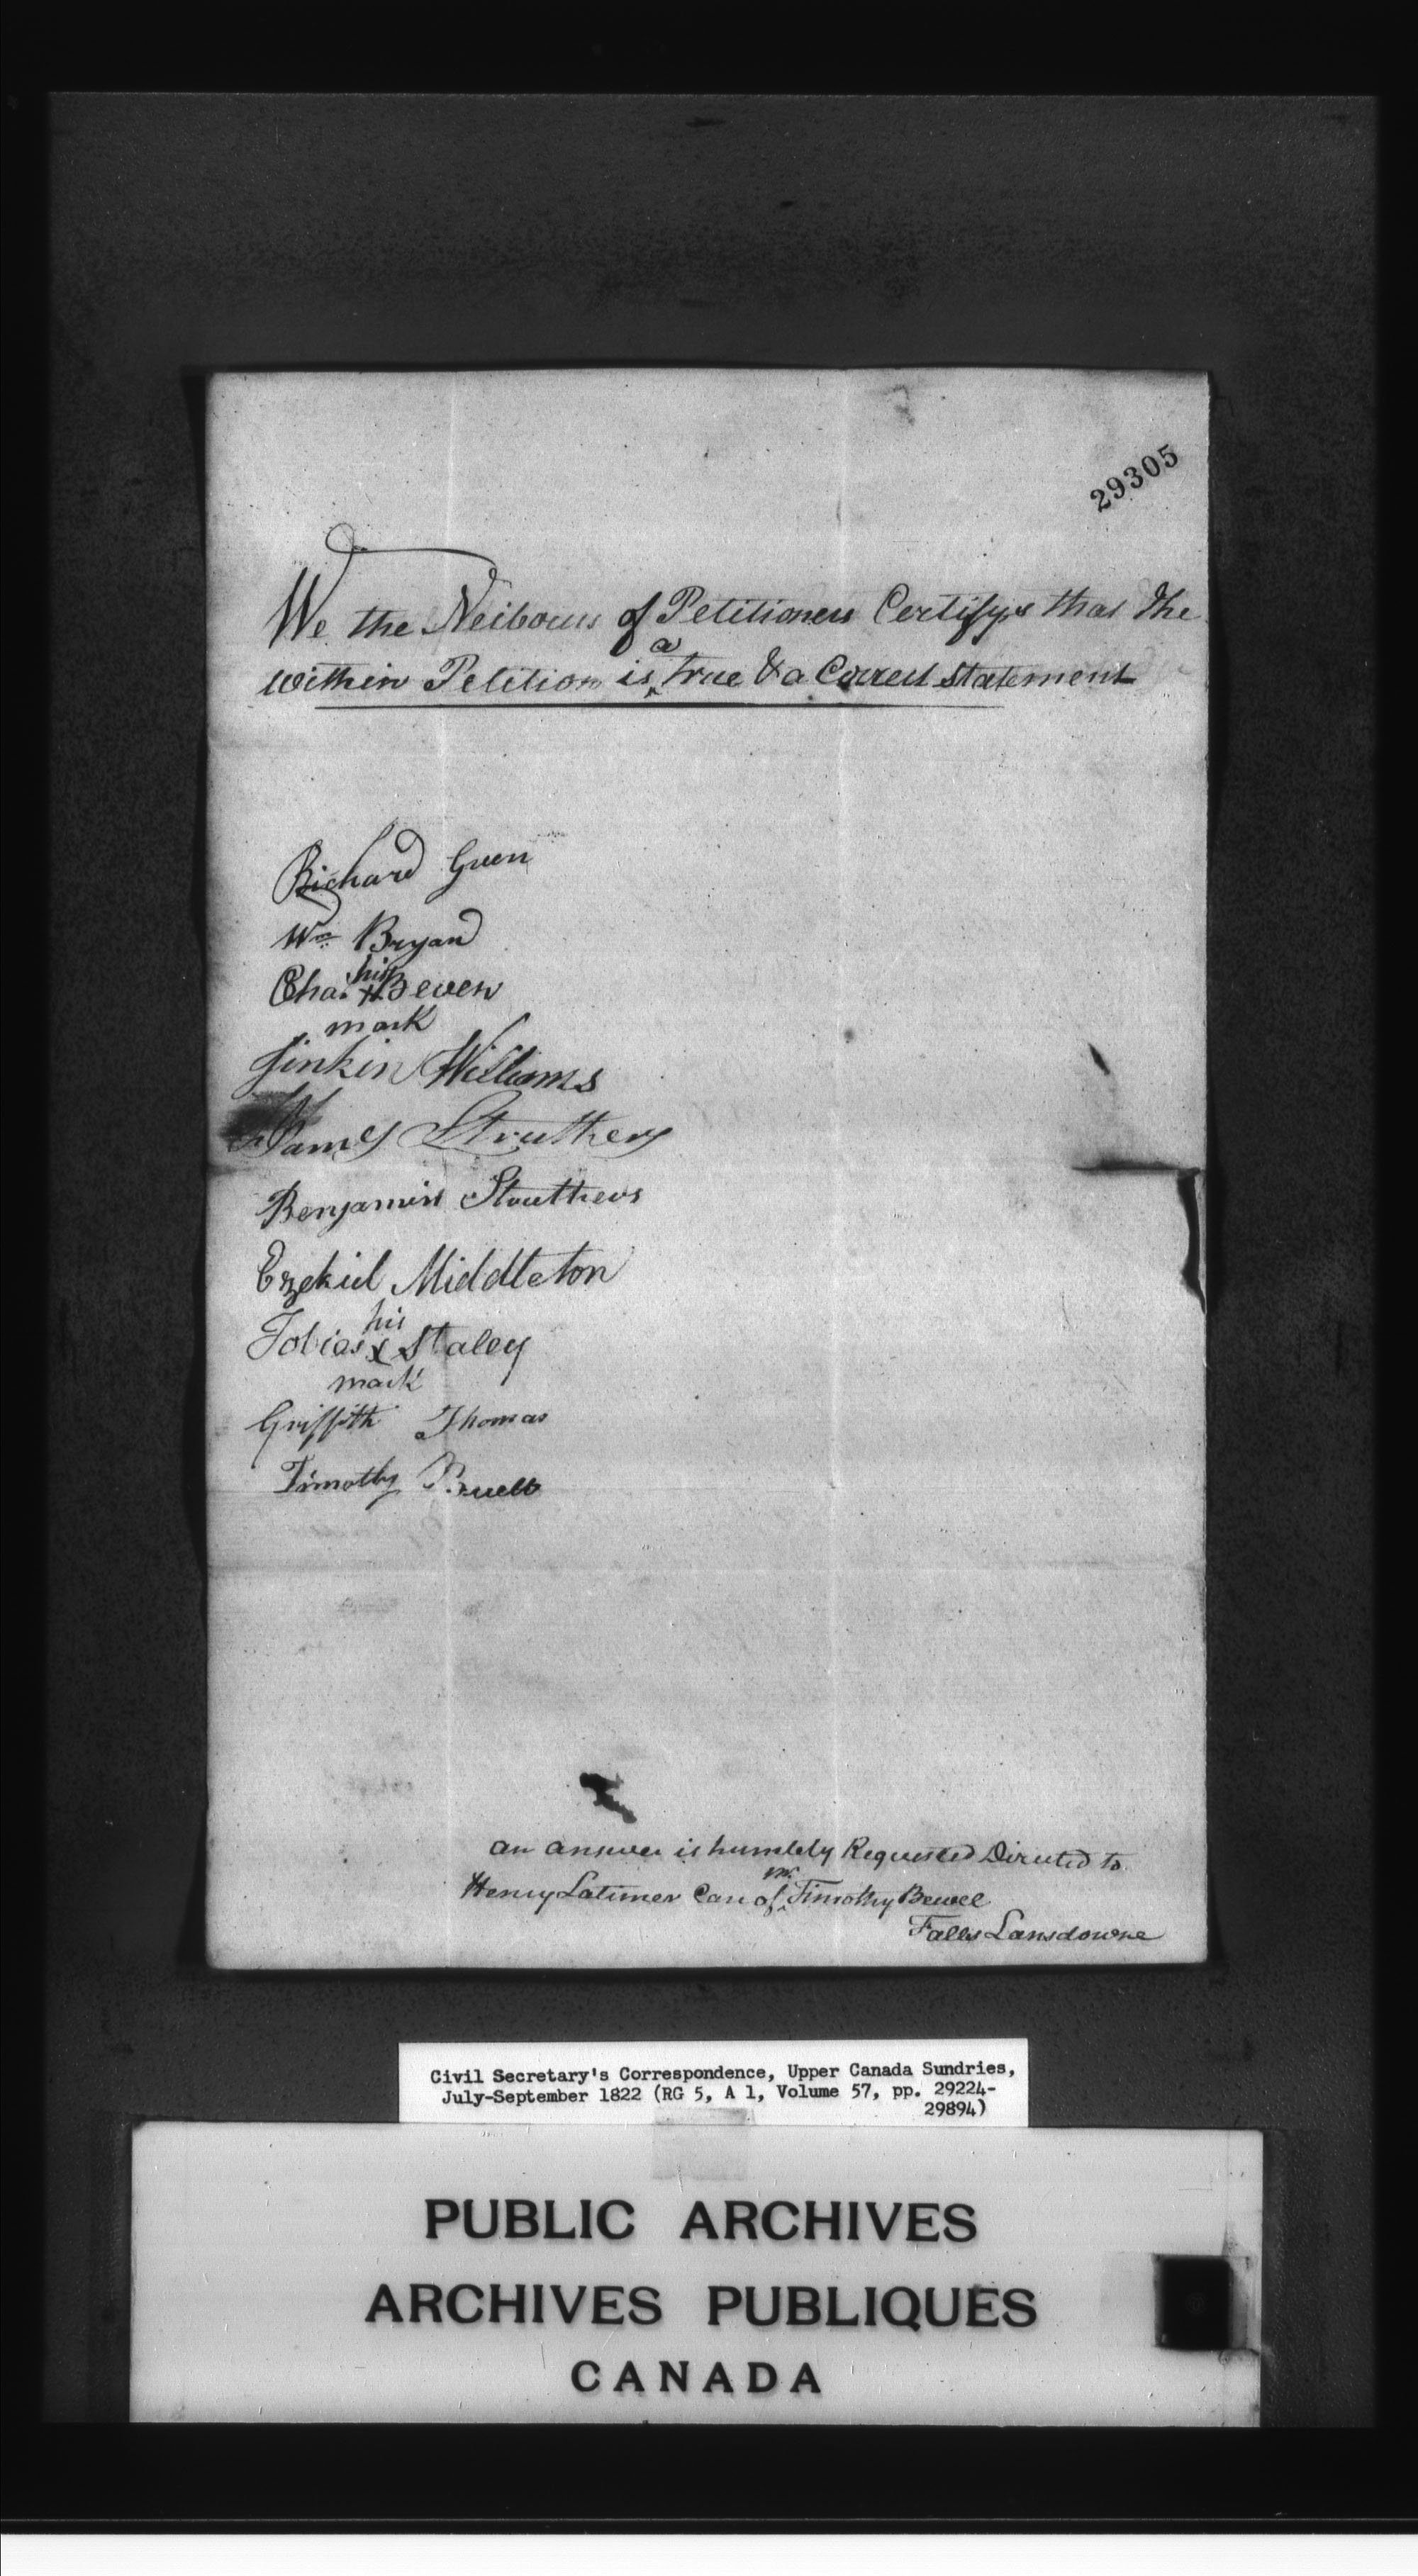 29305
We the Neibours of Petitioners Certifys that the
a
within Petition is ^ true & a Correct Statement
Richard Green
Wm Bryan
his
Chas. X Beven
mark
Jinkin Williams
James Struthers
Benjamin Struthers
Ezekiel Middleton
his
Tobias X Staley
mark
Griffith Thomas
Timothy Buell
an answer is humbly Requested Directed to
mr
Henry Latimer Care of ^ Timothy Bewel
Falls Lansdowne
Civil Secretary's Correspondence, Upper Canada Sundries,
July-September 1822 (RG 5, A 1, Volume 57, pp. 29224-
29894)
PUBLIC ARCHIVES
ARCHIVES PUBLIQUES
CANADA